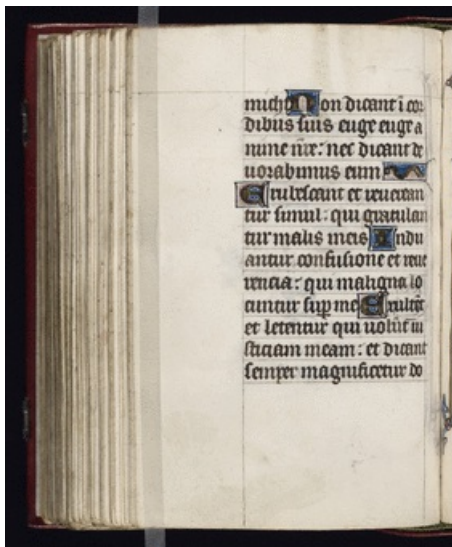 michi Non dicant ī cor
dibus suis euge euge a
nime n̄re: nec dicant de
uorabimus eum
Erubescant et reuerean
tur simul: qui gratulan
tur malis meis Indu
antur confusione et reue
rencia: qui maligna lo
cuntur sup̱ me Exultēt
et letentur qui uolūt iu
sticiam meam: et dicant
semper magnificetur do